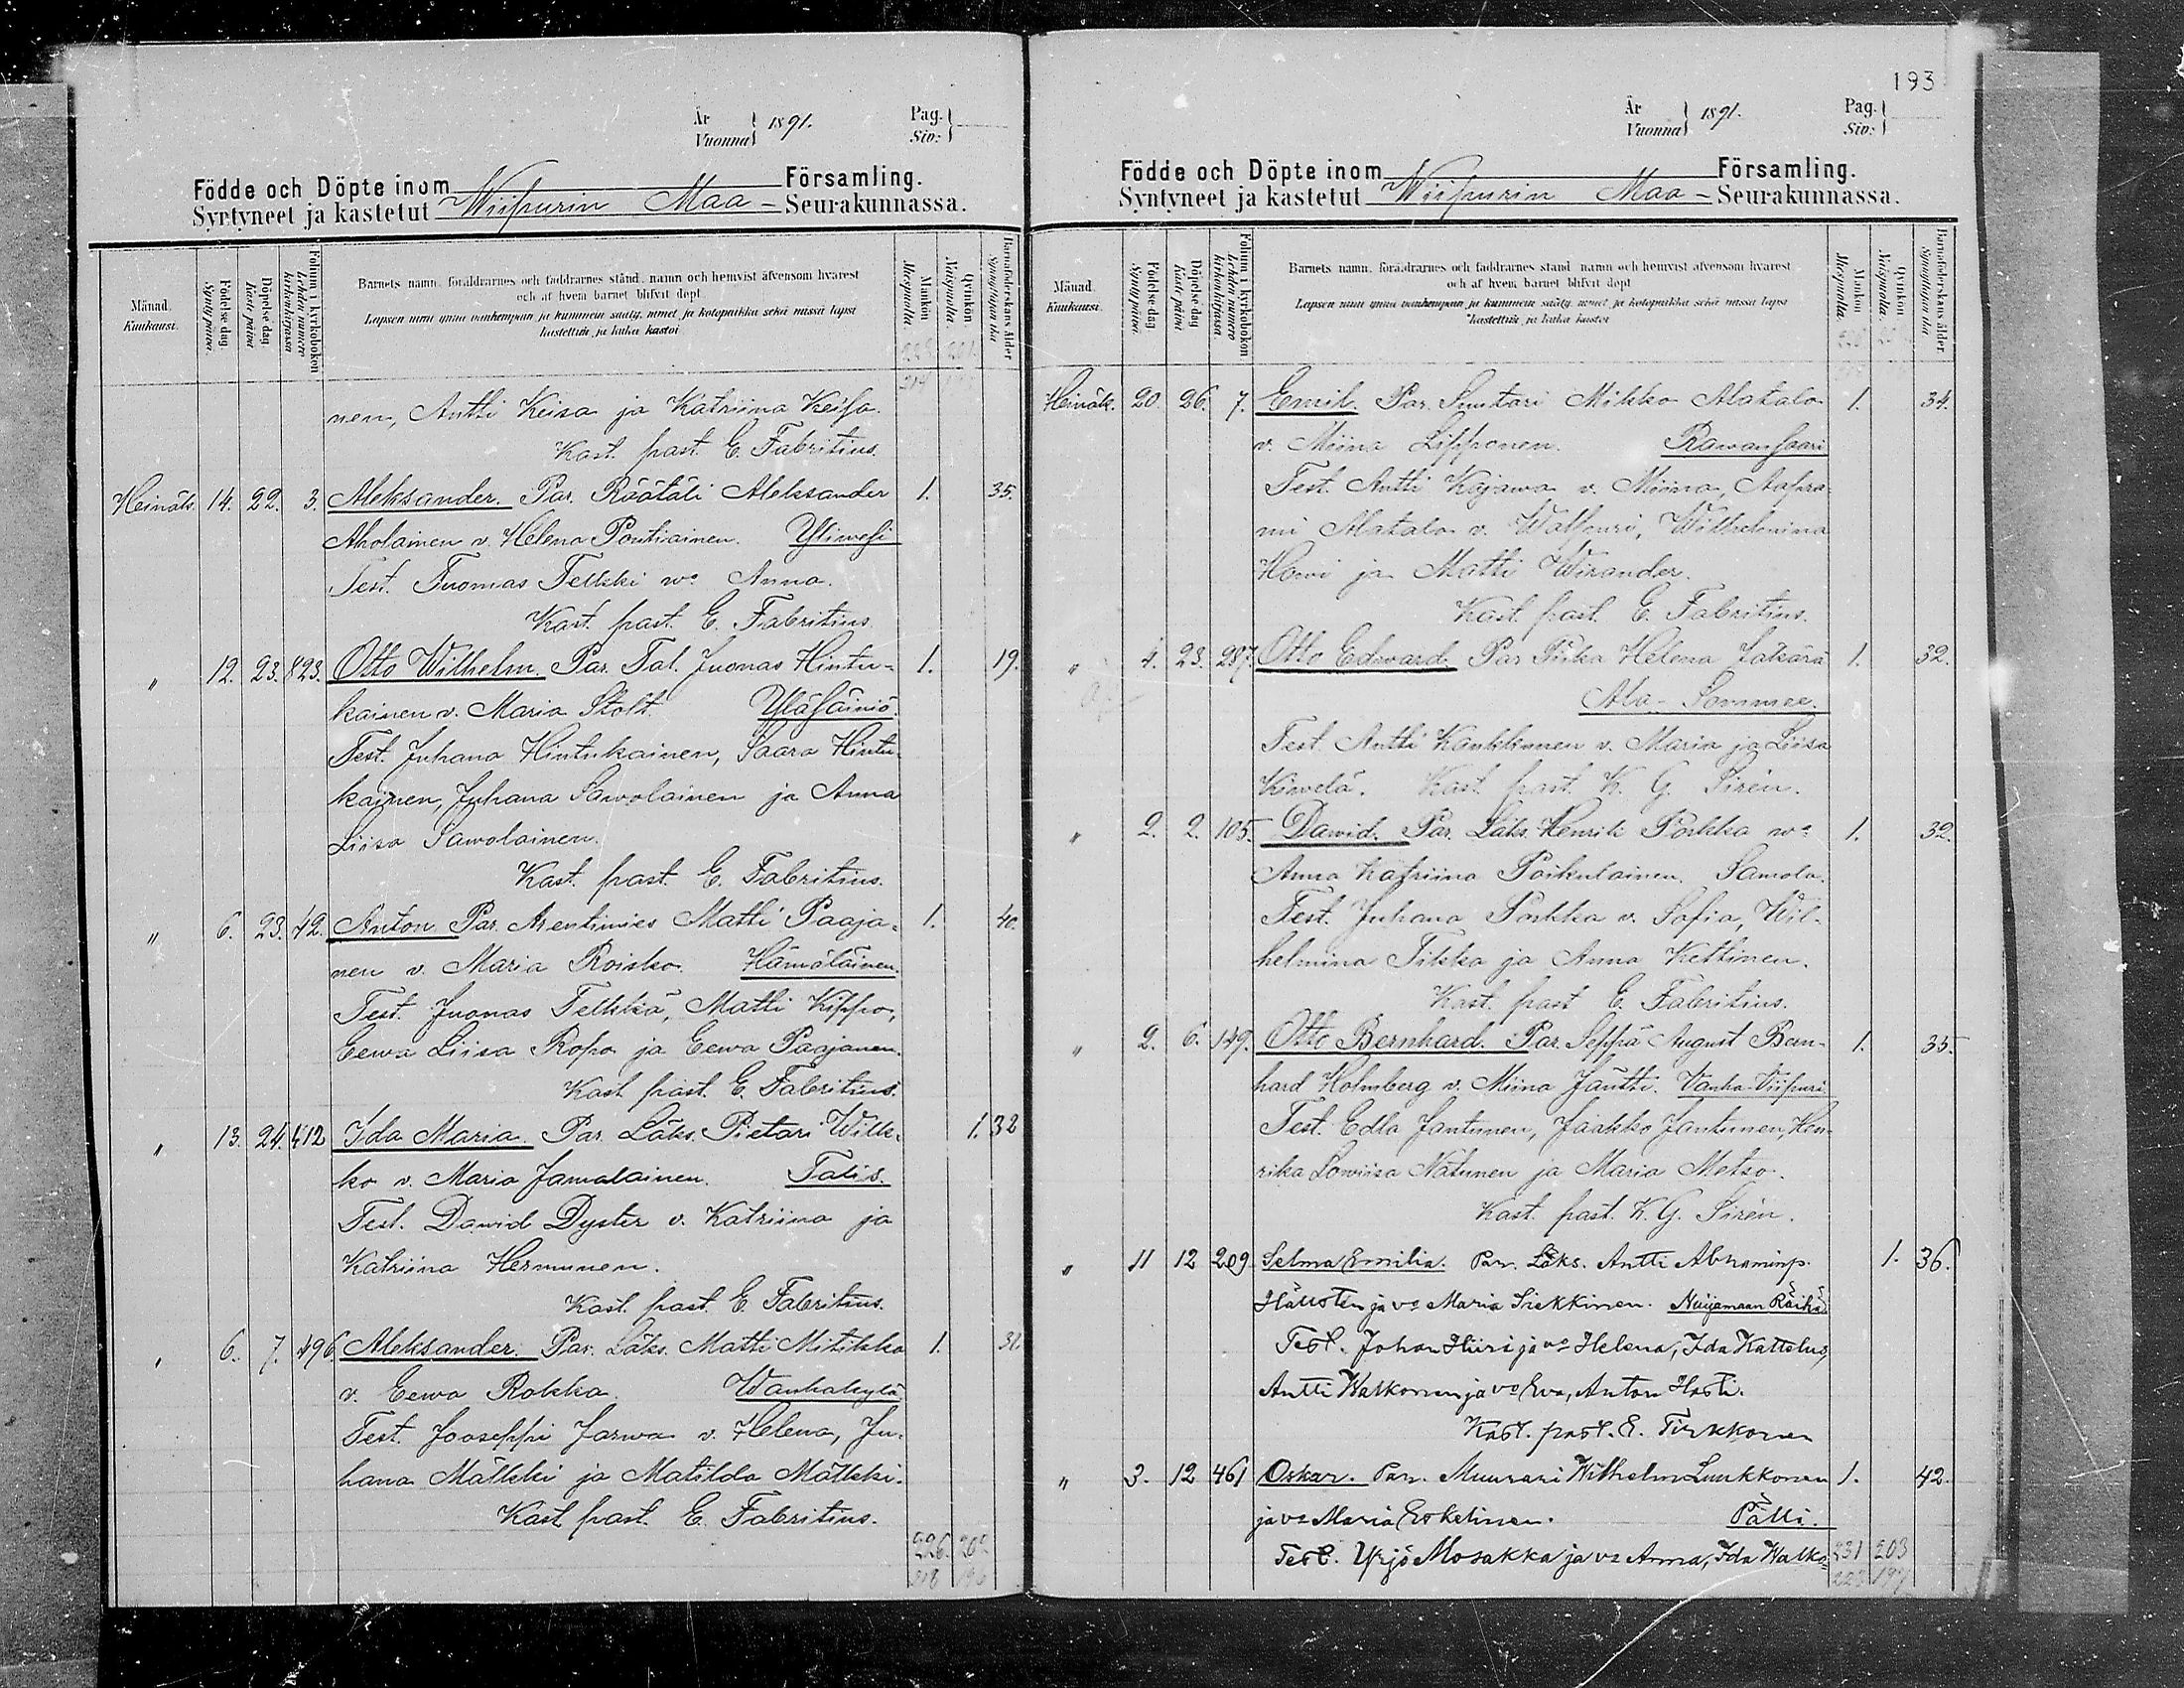 År
Vuonna } 1891.
Pag.
Siv: }
Födde och Döpte inom Församling.
Syntyneet ja kastetut Wiipurin Maa - Seurakunnassa.
Månad.
Kuukausi.
Födelse dag.
Synty päivä
Döpelse dag.
Kaste päivä
Folium i kyrkoboken
Lehden numero kirkonkirjassa
Barnets namn, föräldrarnes och faddrarnes stånd, namn och hemvist äfvensom hvarest
och af hvem barnet blifvit döpt
Lapsen nimi ynnä vanhempain ja kummein sääty, nimet ja kotopaikka sekä missä lapsi
kastettiin ja kuka kastoi
Mankön
Miespuolia
Qvinkön.
Naispuolia
Barnaföderskans ålder
Synnyttäjän ikä
nen, Antti Keisa ja Katriina Keisa.
Kast. past. E. Fabritius.
Heinäk. 14. 22. 3. Aleksander. Par. Räätäli Aleksander 1. 35.
Aholainen v. Helena Pontiainen. Yliwesi
Test. Tuomas Telkki wo Anna.
Kast. past. E. Fabritius.
" 12. 23. 823. Otto Wilhelm. Par. Tal. Juonas Hintu- 1. 19.
kainen v. Maria Stolt. Yläsäiniö.
Test. Juhana Hintukainen, Saara Hintu-
kainen, Juhana Sawolainen ja Anna
Liisa Sawolainen.
Kast. past. E. Fabritius.
" 6. 23. 42. Anton Par. Arentimies Matti Paaja- 1. 40.
nen v. Maria Roisko. Hämäläinen.
Test. Juonas Telkkä, Matti Kippo,
Eewa Liisa Ropo ja Eewa Paajanen.
Kast. past. E. Fabritius.
" 13. 24. 412 Ida Maria. Par. Läks. Pietari Wilk- 1. 32
ko v. Maria Jamalainen. Talis.
Test. Dawid Dyster v. Katriina ja
Katriina Hermunen.
Kast. past. E. Fabritius.
" 6. 7. 496 Aleksander. Par. Läks. Matti Mitikka 1. 31.
v. Eewa Rokka. Wanhakylä
Test. Jooseppi Jarwa v. Helena, Ju-
hana Mälkki ja Matilda Mälkki.
Kast. past. E. Fabritius.
193
År
Vuonna } 1891.
Pag.
Siv: }
Födde och Döpte inom Församling.
Syntyneet ja kastetut Wiipurin Maa - Seurakunnassa.
Månad.
Kuukausi.
Födelse dag
Synty päivä.
Döpelse dag
Kaste päivä
Folium i kyrkoboken
Lehden numero kirkonkirjassa
Barnets namn, föräldrarnes och faddrarnes stånd namn och hemvist äfvensom hvarest
och af hvem barnet blifvit döpt
Lapsen nimi ynnä vanhempain ja kummein sääty, nimet ja kotopaikka sekä missä lapsi
kastettiin ja kuka kastoi
Mankön
Miespuolia.
Qvinkön
Naispuolia.
Barnaföderskans ålder
Synnyttäjän ikä
Heinäk. 20. 26. 7. Emil. Par. Suutari Mikko Alatalo 1. 34.
v. Miina Lipponen. Rawansaari
Test. Antti Kajawa v. Miina, Aapra-
mi Alatalo v. Walpuri, Wilhelmina
Howi ja Matti Wirander.
Kast. past. E. Fabritius.
" 4. 23. 287. Otto Edward. Par Piika Helena Jakärä 1. 32.
Ala-Sommee.
Test. Antti Kaukkunen v. Maria ja Liisa
Kiwelä. Kast. past. K. G. Sirén.
" 2. 2. 105. Dawid. Par. Läks. Henrik Porkka wo 1. 32.
Anna Katriina Poikulainen. Samola.
Test. Juhana Porkka v. Sofia, Wil-
helmina Tikka ja Anna Kettinen.
Kast. past E. Fabritius.
" 2. 6. 149. Otto Bernhard. Par. Seppä August Bern- 1. 35.
hard Holmberg v. Miina Jäntti. Vanha-Viipuri
Test. Edla Jantunen, Jaakko Jantunen, Hen-
rika Lowiisa Natunen ja Maria Metso.
Kast. past. K. G. Sirén.
" 11 12 209. Selma Emilia. Par. Läks. Antti Abraminp. 1. 36.
Hällsten ja vo Maria Siekkinen. Nuijamaan Räihä
Test. Johan Hiiri ja vo Helena, Ida Kattelus,
Antti Walkonen ja vo Eva, Anton Hosti.
Kast. past. E. Tirkkonen
" 3. 12 461 Oskar. Par. Muurari Wilhelm Luukkonen 1. 42.
ja vo Maria Eskelinen. Pälli.
Test. Yrjö Mosakka ja vo Anna, Ida Walko-
231 203